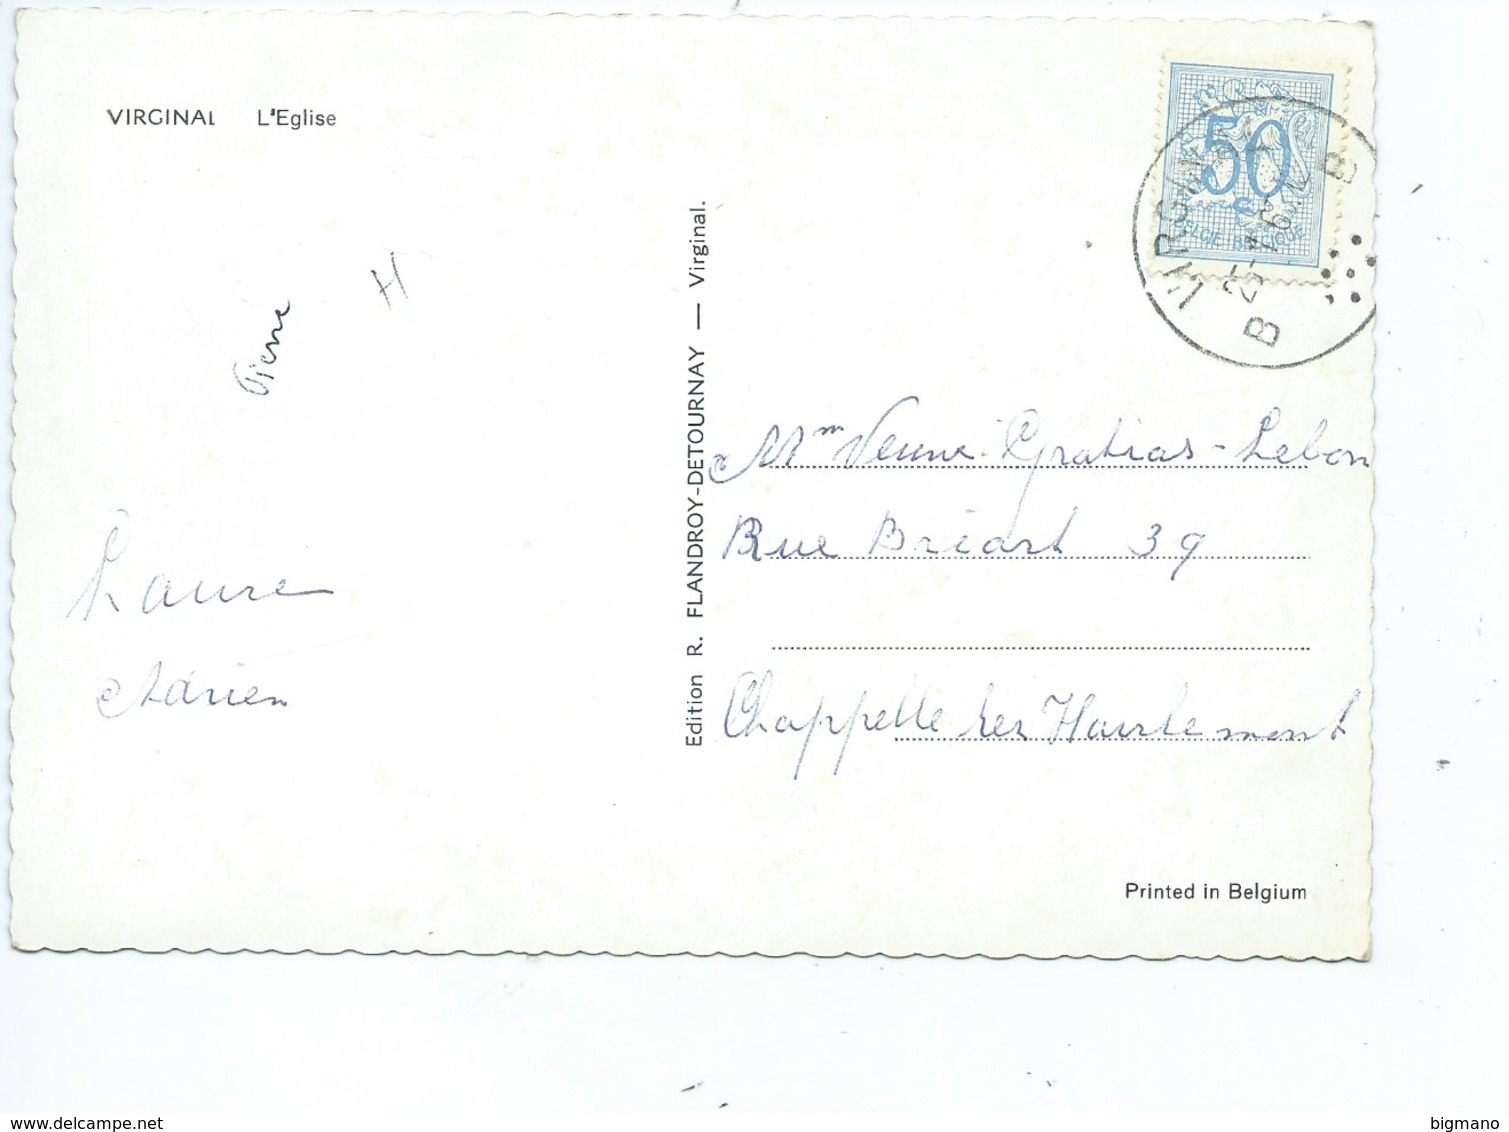 VIRGINAL L'Eglise
Pierre
H
Laure
Adrien
Edition R. FLANDROY-DETOURNAY — Virginal.
50
BELGIE BELGIQUE
VIRGINAL
B B
Mm Veuve Gratias-Lebon
Rue Briart 39
Chappelle lez Harlemont
Printed in Belgium
delcampe.net
bigmano